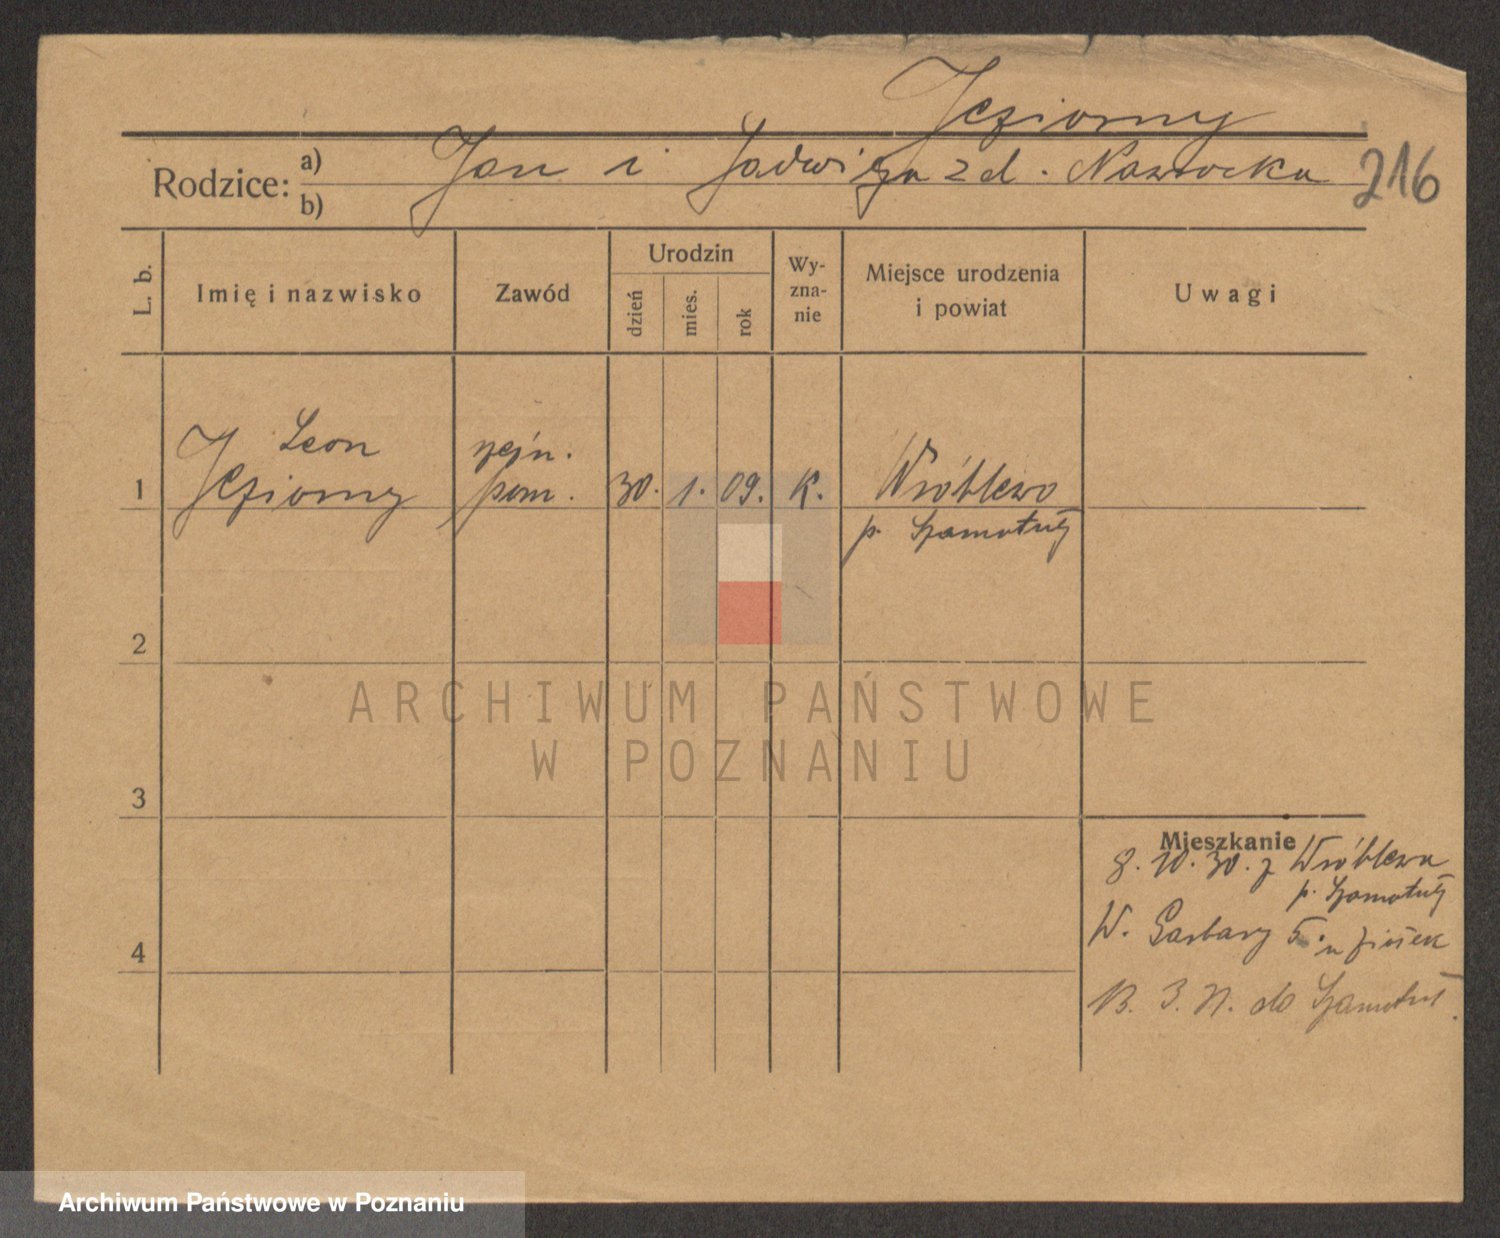 Jeziorny
Rodzice: a) b) Jan i Jadwiga z d. Nawrocka 216
L. b. Imię i nazwisko Zawód Urodzin dzień mies. rok Wyznanie Miejsce urodzenia i powiat Uwagi
Leon
1 Jeziorny pom. 30. 1. 09. K. Wróblewo
p. Szamotuły
2
ARCHIWUM PAŃSTWOWE
W POZNANIU
3
Mieszkanie
8. 10. 30. z Wróblewa
p. Szamotuły
W. Garbary 5. u
4
do Szamotuł.
Archiwum Państwowe w Poznaniu